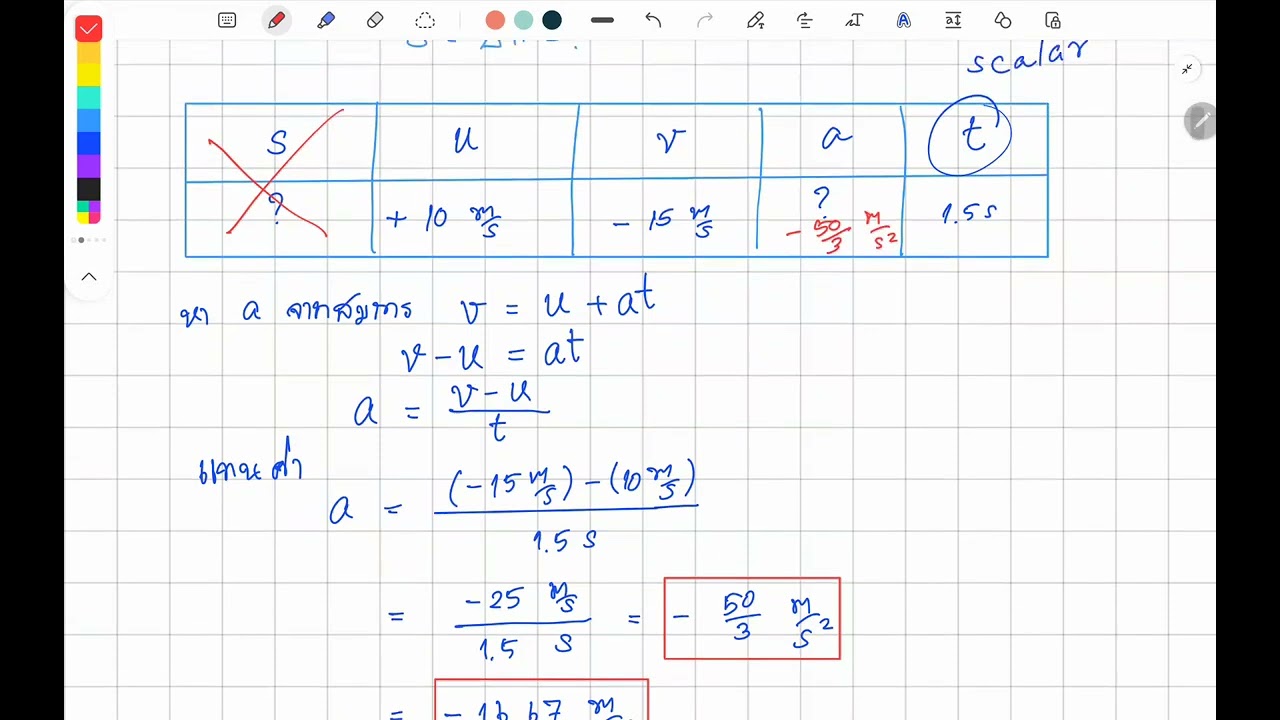 scalar
S u v a t
? + 10 m/s - 15 m/s ? 1.5 s
- 50/3 m/s²
หา a จากสมการ v = u + at
v - u = at
a = (v - u)/t
แทนค่า
a = ((-15 m/s) - (10 m/s))/1.5 s
= (-25 m/s)/(1.5 s) = - 50/3 m/s²
= - 16.67 m/s